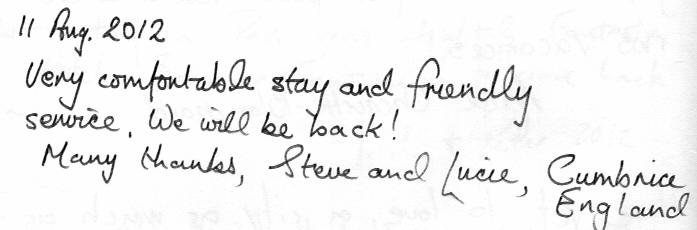 11 Aug. 2012
Very comfortable stay and friendly
service. We will be back!
Many thanks, Steve and Lucie, Cumbrice
England